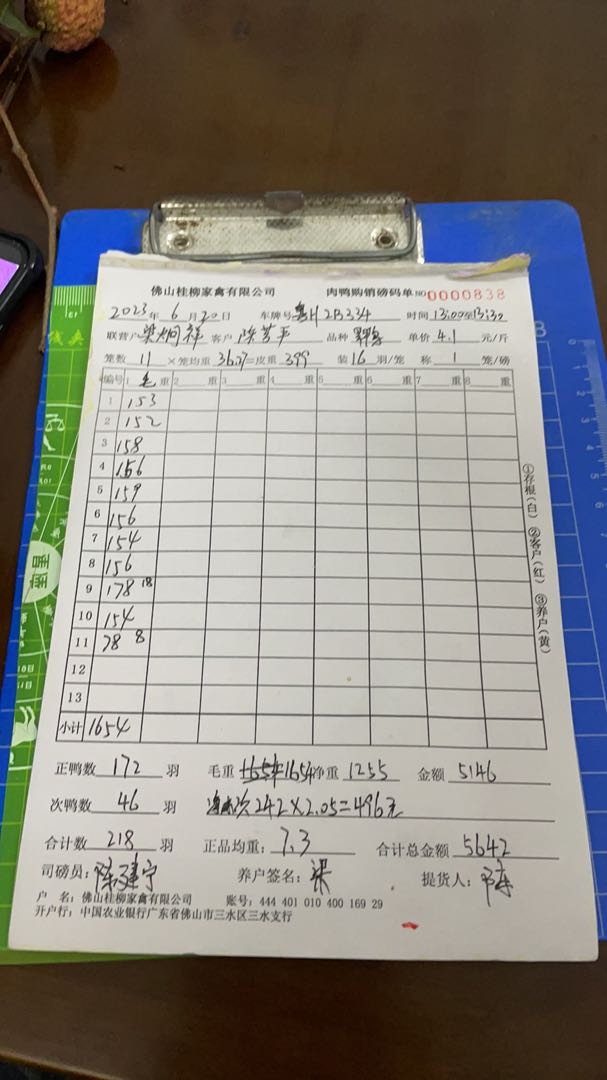 佛山桂柳家禽有限公司 肉鸭购销磅码单 NO 0000838
2023年 6 月 20 日 车牌号 粤H2B334 时间 13:00至13:30
联营户 梁炯祥 客户 陈芳平 品种 单价 4.1 元/斤
笼数 11 ×笼均重 36.27=皮重 399 装 16 羽/笼 称 1 笼/磅
编号 1 毛 重 2 重 3 重 4 重 5 重 6 重 7 重 8 重
1 153
2 152
3 158
4 156
5 159
6 156
7 154
8 156
9 178 18
10 154
11 78 8
12
13
小计 1654
①存根(白) ②客户(红) ③养户(黄)
正鸭数 172 羽 毛重 1654 净重 1255 金额 5146
次鸭数 46 羽 次242×2.05=496元
合计数 218 羽 正品均重: 7.3 合计总金额 5642
司磅员: 陈建宁 养户签名: 梁 提货人:
户 名: 佛山桂柳家禽有限公司 账号: 444 401 010 400 169 29
开户行: 中国农业银行广东省佛山市三水区三水支行